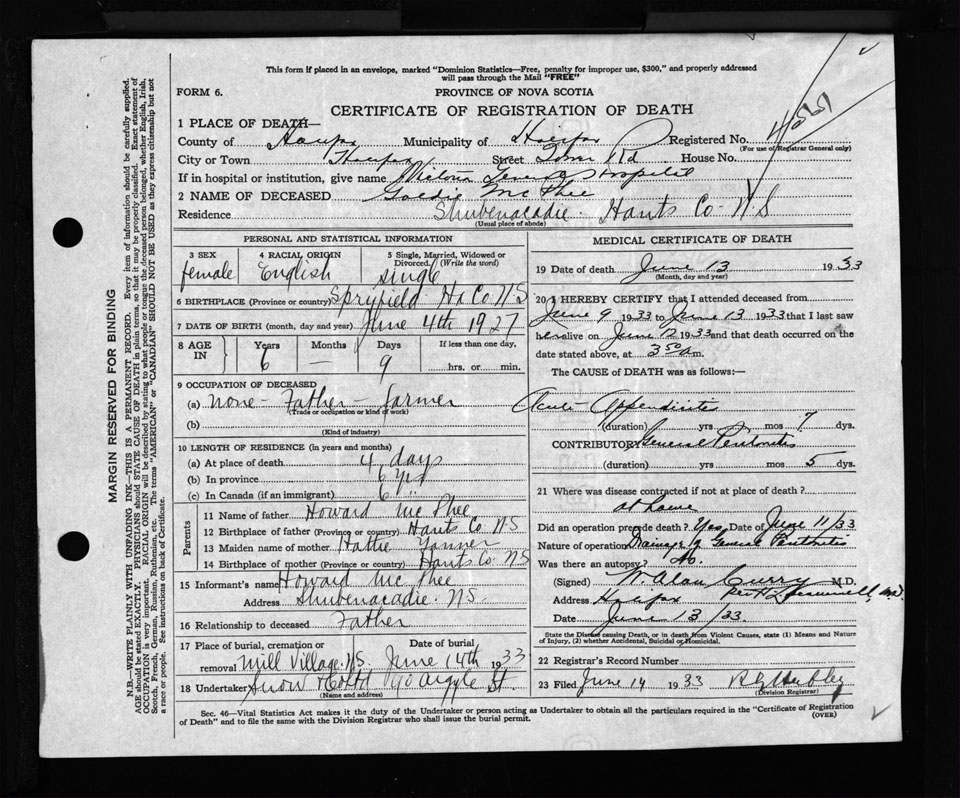 This form if placed in an envelope, marked "Dominion Statistics—Free, penalty for improper use, $300," and properly addressed
will pass through the Mail "FREE"
FORM 6. PROVINCE OF NOVA SCOTIA
CERTIFICATE OF REGISTRATION OF DEATH
1 PLACE OF DEATH—
County of Halifax Municipality of Halifax Registered No.
(For use of Registrar General only)
City or Town Halifax Street Tower Rd House No.
If in hospital or institution, give name Victoria General Hospital
2 NAME OF DECEASED Goldie Mc Phee
Residence Shubenacadie Hants Co N.S
(Usual place of abode)
PERSONAL AND STATISTICAL INFORMATION
3 SEX 4 RACIAL ORIGIN 5 Single, Married, Widowed or Divorced. (Write the word)
female English single
6 BIRTHPLACE (Province or country) Spryfield Hx Co. N S
7 DATE OF BIRTH (month, day and year) June 4th 1927
8 AGE IN Years Months Days If less than one day,
6 — 9 hrs. or min.
9 OCCUPATION OF DECEASED
(a) none - Father - farmer
(Trade or occupation or kind of work)
(b)
(Kind of industry)
10 LENGTH OF RESIDENCE (in years and months)
(a) At place of death 4 days
(b) In province 6 yrs
(c) In Canada (if an immigrant) 6 "
Parents
11 Name of father Howard Mc Phee
12 Birthplace of father (Province or country) Hants Co N S
13 Maiden name of mother Hattie
14 Birthplace of mother (Province or country) Hants Co N S
15 Informant's name Howard Mc Phee
Address Shubenacadie. N S.
16 Relationship to deceased Father
17 Place of burial, cremation or removal Date of burial
Mill Village. N S. June 14th 1933
18 Undertaker Snow & Co Ltd 90 Argyle St.
(Name and address)
MEDICAL CERTIFICATE OF DEATH
19 Date of death June 13 1933
(Month, day and year)
20 I HEREBY CERTIFY that I attended deceased from
June 9 1933 to June 13 1933 that I last saw
her alive on June 12 1933 and that death occurred on the
date stated above, at 3 50 a m.
The CAUSE of DEATH was as follows:—
Acute Appendicitis
(duration) yrs mos 7 dys.
CONTRIBUTORY General Peritonitis
(duration) yrs mos 5 dys.
21 Where was disease contracted if not at place of death?
at home
Did an operation precede death? Yes Date of June 11/33
Nature of operation Drainage of General Peritonitis
Was there an autopsy? No.
(Signed) W. Alan Curry M.D.
Address Halifax Per
Date June 13/33.
State the Disease causing Death, or in death from Violent Causes, state (1) Means and Nature
of Injury, (2) whether Accidental, Suicidal or Homicidal.
22 Registrar's Record Number
23 Filed June 14 1933
(Division Registrar)
Sec. 46—Vital Statistics Act makes it the duty of the Undertaker or person acting as Undertaker to obtain all the particulars required in the "Certificate of Registration
of Death" and to file the same with the Division Registrar who shall issue the burial permit. (OVER)
MARGIN RESERVED FOR BINDING
N.B.—WRITE PLAINLY WITH UNFADING INK—THIS IS A PERMANENT RECORD. Every item of information should be carefully supplied.
AGE should be stated EXACTLY. PHYSICIANS should STATE CAUSE OF DEATH in plain terms, so that it may be properly classified. Exact statement of
OCCUPATION is very important. RACIAL ORIGIN will be described by stating to what people or tongue the deceased person belonged, whether English, Irish,
Scotch, French, German, Russian, Ruthenian, etc. The terms "AMERICAN" or "CANADIAN" SHOULD NOT BE USED as they express citizenship but not
a race or people. See instructions on back of Certificate.